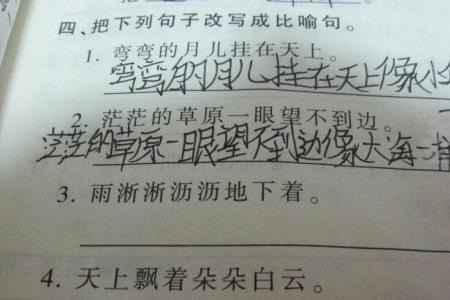 四、把下列句子改写成比喻句。
1. 弯弯的月儿挂在天上。
弯弯的月儿挂在天上像小
2. 茫茫的草原一眼望不到边。
茫茫的草原一眼望不到边像大海一样
3. 雨淅淅沥沥地下着。
4. 天上飘着朵朵白云。